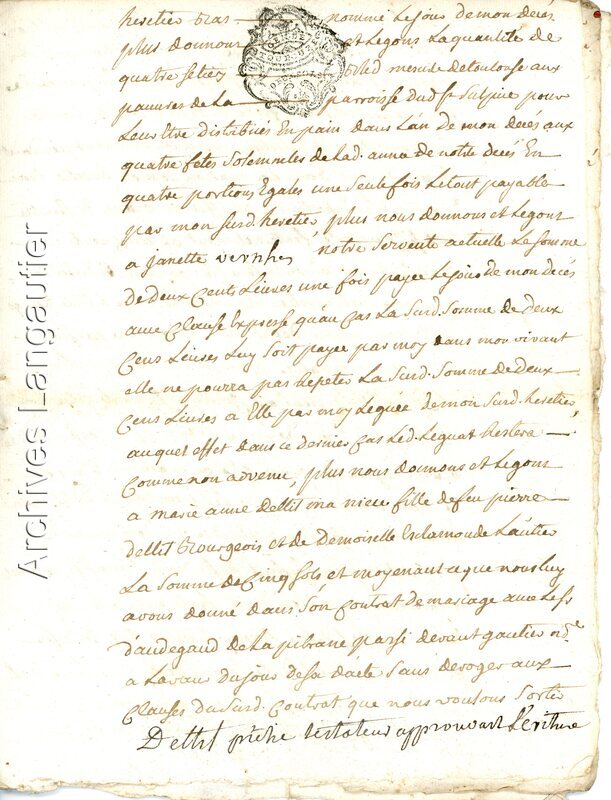 heretier bas nommé le jour de mon decés
plus donnons et legons la quantité de
quatre setiez bled mesure de toulouse aux
pauvres de la parroisse dud. st sulpice pour
Leur être distribués En pain dans l'an de mon decés aux
quatre fetes solemneles de lad. année de notre decés En
quatre portions Egales une seule fois le tout payable
par mon surd. heretier, plus nous donnons et legons
a janette notre servente actuelle le somme
de deux cents Livres une fois payee le jour de mon decés
avec clause Expresse qu'au cas La surd. somme de deux
cens Livres Luy soit payee par moy dans mon vivant
elle ne pourra pas repeter La surd. somme de deux
cens Livres a Elle par moy leguée de mon surd. heretier,
auquel effet dans ce dernier cas Led. Leguat restera
comme non advenu, plus nous donnons et Legons
a marie anne dettil ma niece fille de feu pierre
dettil Bourgeois et de Demoiselle Esclamonde Lautier
La somme de Cinq sols et moyenant ce que nous luy
avons donné dans son contrat de mariage avec le sr
d'audegaud de La pibrane passé devant gautier nore
a Lavaur du jour de sa dacte sans deroger aux
clauses du surd. contrat que nous voulons sortir
Dettil prêtre testateur approuvant l'eriture
Archives Langautier